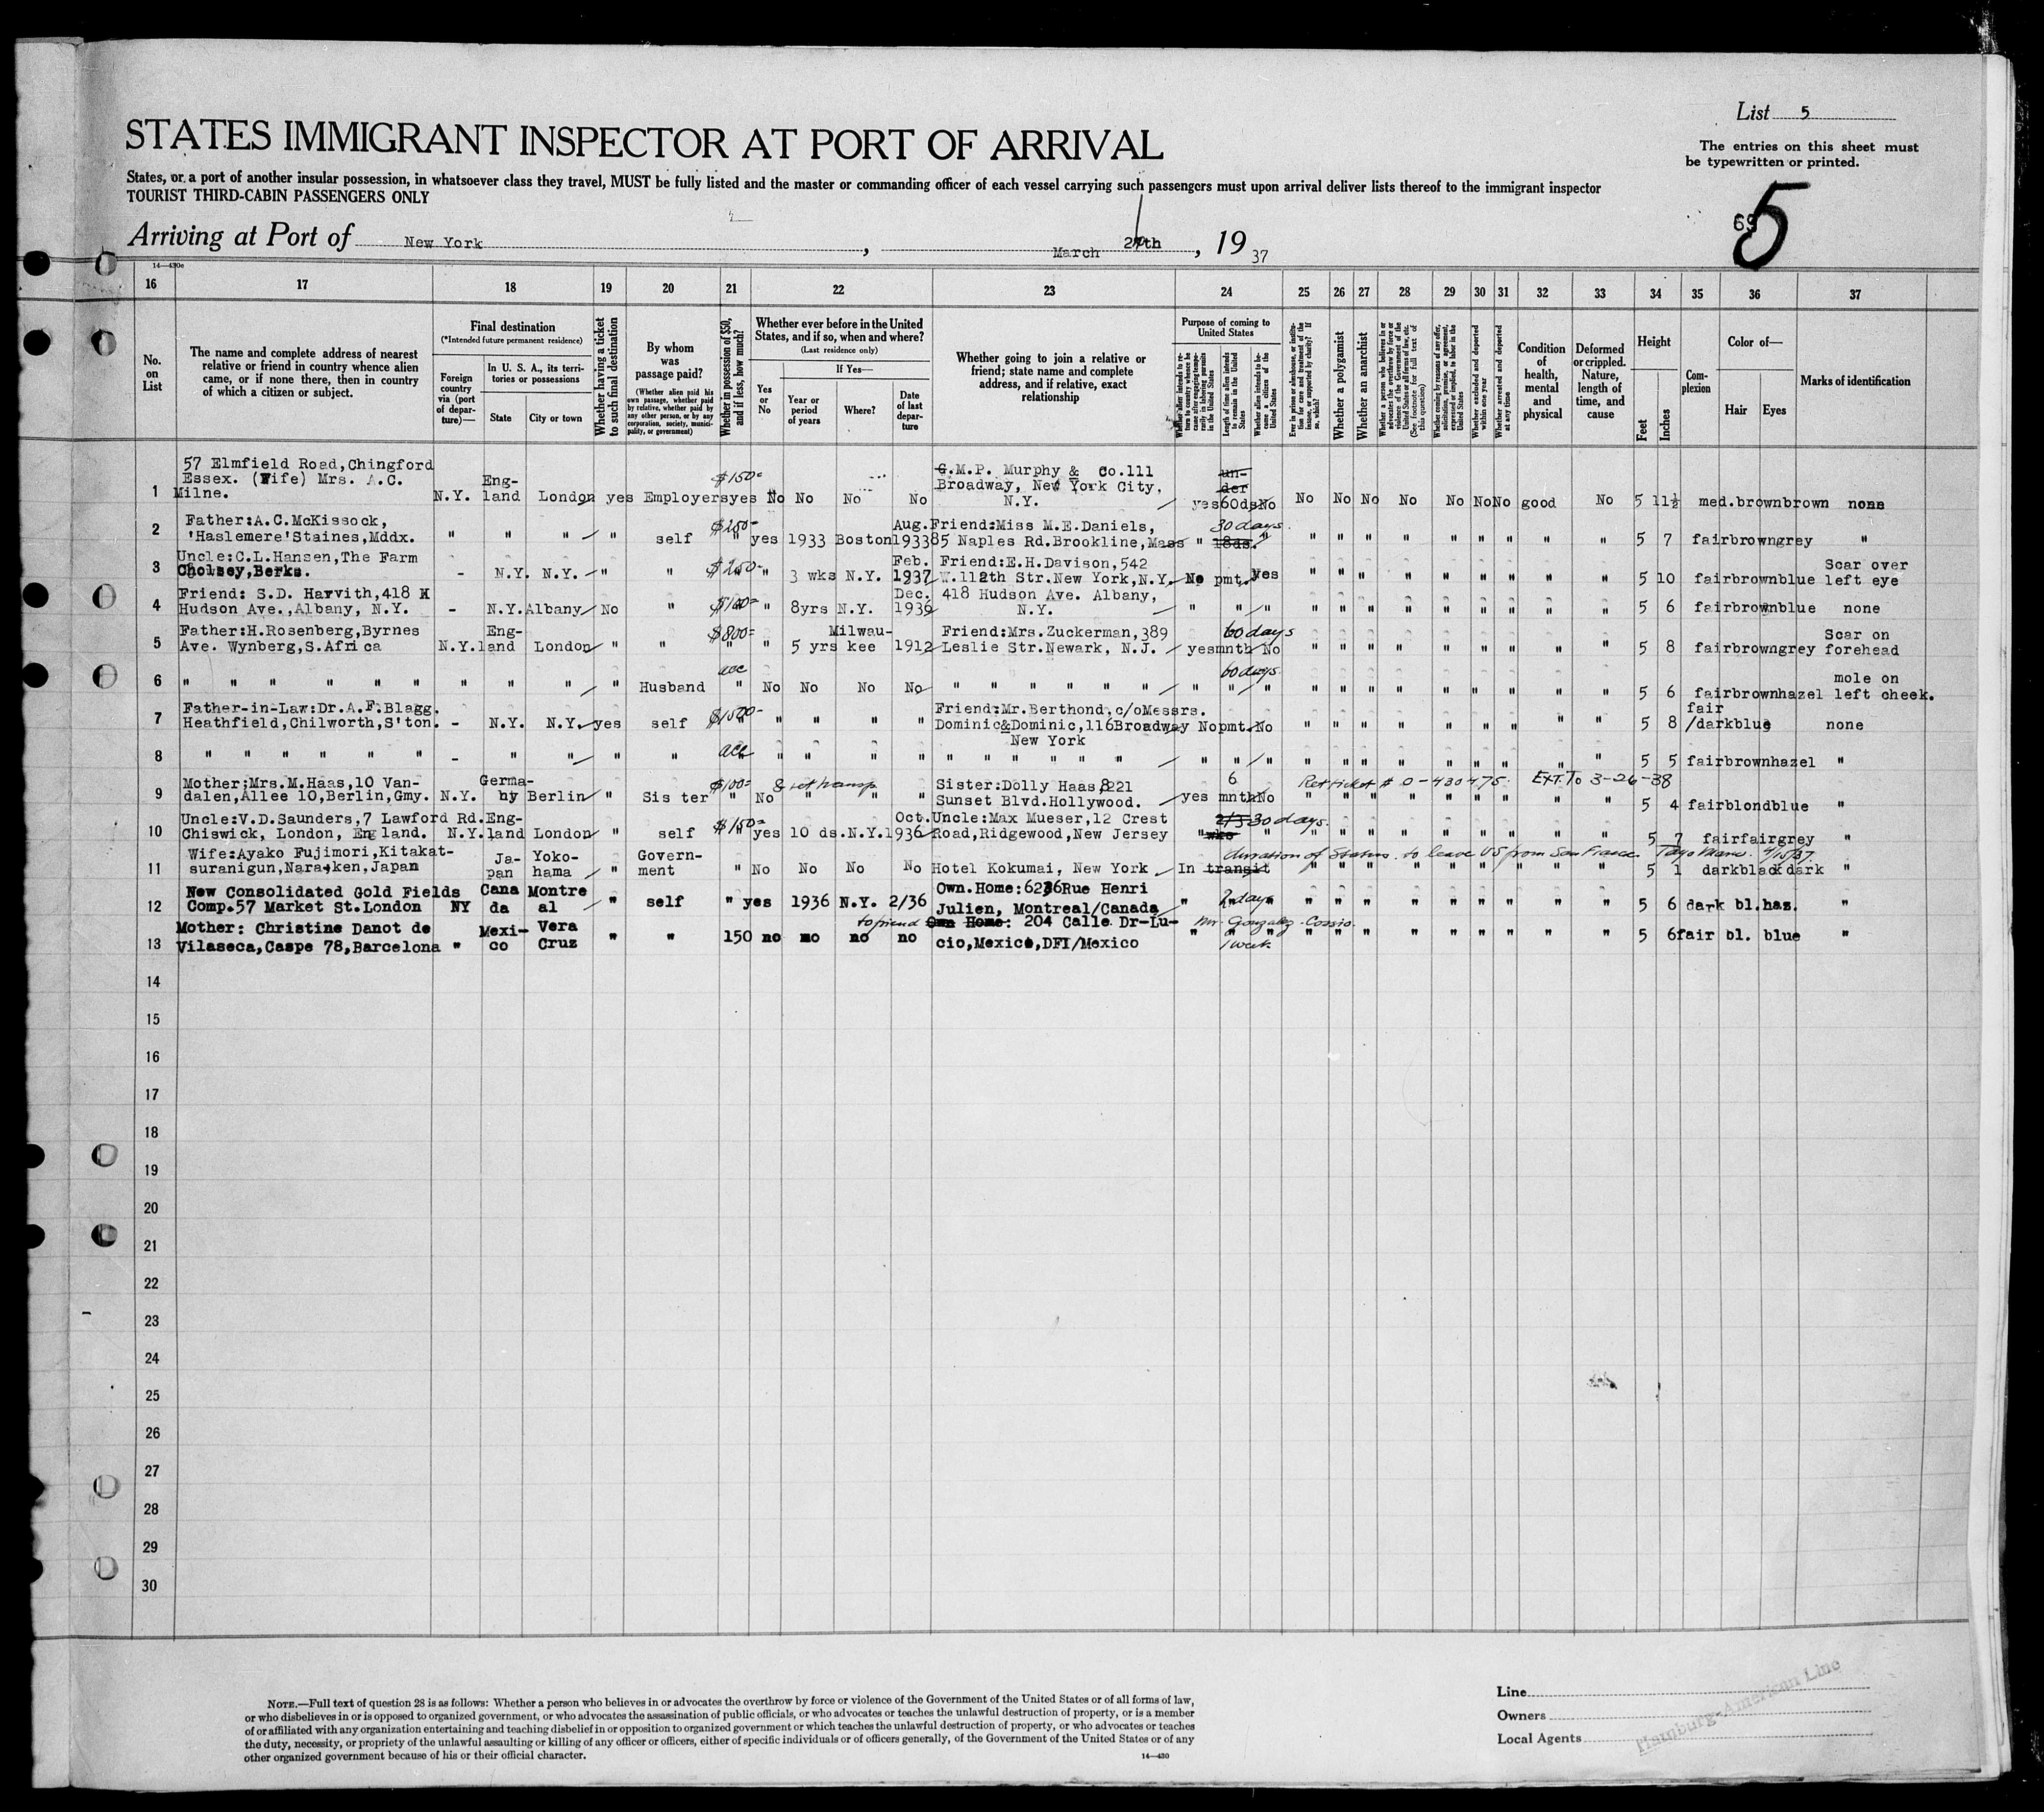 List 5
STATES IMMIGRANT INSPECTOR AT PORT OF ARRIVAL
The entries on this sheet must
be typewritten or printed.
States, or a port of another insular possession, in whatsoever class they travel, MUST be fully listed and the master or commanding officer of each vessel carrying such passengers must upon arrival deliver lists thereof to the immigrant inspector
TOURIST THIRD-CABIN PASSENGERS ONLY
5
Arriving at Port of New York, March 27th, 19 37
14—430e
16 17 18 19 20 21 22 23 24 25 26 27 28 29 30 31 32 33 34 35 36 37
No. on List
The name and complete address of nearest relative or friend in country whence alien came, or if none there, then in country of which a citizen or subject.
Final destination
(*Intended future permanent residence)
Foreign country via (port of departure)—
In U. S. A., its territories or possessions
State
City or town
Whether having a ticket to such final destination
By whom was passage paid?
(Whether alien paid his own passage, whether paid by relative, whether paid by any other person, or by any corporation, society, municipality, or government)
Whether in possession of $50, and if less, how much?
Whether ever before in the United States, and if so, when and where?
(Last residence only)
Yes or No
If Yes—
Year or period of years
Where?
Date of last departure
Whether going to join a relative or friend; state name and complete address, and if relative, exact relationship
Purpose of coming to United States
Length of time alien intends to remain in the United States
Whether alien intends to become a citizen of the United States
Whether a polygamist
Whether an anarchist
Whether excluded and deported within one year
Whether arrested and deported at any time
Condition of health, mental and physical
Deformed or crippled. Nature, length of time, and cause
Height
Feet
Inches
Complexion
Color of—
Hair
Eyes
Marks of identification
1 57 Elmfield Road,Chingford Essex. (Wife) Mrs. A.C. Milne. N.Y. England London yes Employers $150= yes No No No No G.M.P. Murphy & Co.111 Broadway, New York City, N.Y. yes under 60ds No No No No No No No No good No 5 11½ med. brown brown none
2 Father:A.C.McKissock, 'Haslemere'Staines, Mddx. " " " " self $250- " yes 1933 Boston Aug. 1933 Friend:Miss M.E.Daniels, 85 Naples Rd.Brookline,Mass " 30 days 18ds. " " " " " " " " " " 5 7 fair brown grey "
3 Uncle:C.L.Hansen,The Farm Cholsey,Berks. - N.Y. N.Y. " " $250- " " 3 wks N.Y. Feb. 1937 Friend:E.H.Davison, 542 W.112th Str.New York,N.Y. No pmt. yes " " " " " " " " " 5 10 fair brown blue Scar over left eye
4 Friend: S.D. Harvith,418 Hudson Ave.,Albany, N.Y. - N.Y. Albany No " $100= " 8yrs N.Y. Dec. 1936 418 Hudson Ave. Albany, N.Y. " " " " " " " " " " " " 5 6 fair brown blue none
5 Father:H.Rosenberg,Byrnes Ave. Wynberg,S.Africa N.Y. England London " " $800= " " 5 yrs Milwaukee 1912 Friend:Mrs.Zuckerman,389 Leslie Str.Newark, N.J. yes 60 days mnth No " " " " " " " " " 5 8 fair brown grey Scar on forehead
6 " " " " " " " " " " Husband acc " No No No No " " " " " " " 60 days " " " " " " " " " " " 5 6 fair brown hazel mole on left cheek.
7 Father-in-Law:Dr.A.F.Blagg. Heathfield,Chilworth,S'ton. - N.Y. N.Y. yes self $1500- " " " " " Friend:Mr.Berthond,c/oMessrs. Dominic&Dominic,116Broadway New York No pmt. No " " " " " " " " " 5 8 fair /dark blue none
8 " " " " " " " - " " " " acc " " " " " " " " " " " " " " " " " " " " " " " " 5 5 fair brown hazel "
9 Mother;Mrs.M.Haas,10 Vandalen,Allee 10,Berlin,Gmy. N.Y. Germany Berlin " Sister $100= " No " " " Sister:Dolly Haas,8221 Sunset Blvd.Hollywood. yes 6 mnth No Ret ticket # 0-430475. Ext. To 3-26-38 " " " " " " " " " 5 4 fair blond blue "
10 Uncle:V.D.Saunders,7 Lawford Rd. Chiswick, London, England. N.Y. England London " self $150= " yes 10 ds. N.Y. Oct. 1936 Uncle:Max Mueser,12 Crest Road,Ridgewood,New Jersey " 2/3 wks 30 days. " " " " " " " " " " 5 7 fair fair grey "
11 Wife:Ayako Fujimori,Kitakatsuranigun,Nara-ken,Japan Japan Yokohama " Government " No No No No Hotel Kokumai, New York In transit duration of Status. to leave US from San Franc. Tayo Maru. 4/15/37. " " " " " " " " " 5 1 dark black dark "
12 New Consolidated Gold Fields Comp.57 Market St.London NY Canada Montreal " self " yes 1936 N.Y. 2/36 Own.Home:6236Rue Henri Julien, Montreal/Canada " 2 days " " " " " " " " " " 5 6 dark bl. haz. "
13 Mother: Christine Danot de Vilaseca,Caspe 78,Barcelona " Mexico Vera Cruz " " 150 no no no no to friend Own Home: 204 Calle Dr-Lucio,Mexico,DFI/Mexico Mr. Gonzalez-Cossio. " " " 1 week " " " " " " " " " 5 6 fair bl. blue "
14
15
16
17
18
19
20
21
22
23
24
25
26
27
28
29
30
NOTE.—Full text of question 28 is as follows: Whether a person who believes in or advocates the overthrow by force or violence of the Government of the United States or of all forms of law,
or who disbelieves in or is opposed to organized government, or who advocates the assassination of public officials, or who advocates or teaches the unlawful destruction of property, or is a member
of or affiliated with any organization entertaining and teaching disbelief in or opposition to organized government or which teaches the unlawful destruction of property, or who advocates or teaches
the duty, necessity, or propriety of the unlawful assaulting or killing of any officer or officers, either of specific individuals or of officers generally, of the Government of the United States or of any
other organized government because of his or their official character.
14—430
Line
Owners
Local Agents
Hamburg-American Line